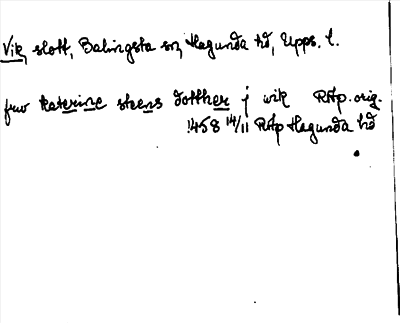 Vik, slott, Balingsta sn, Hagunda hd, Upps. l.
fru katerine steens dotther j wik RAp. orig.
1458 14/11 RAp Hagunda hd